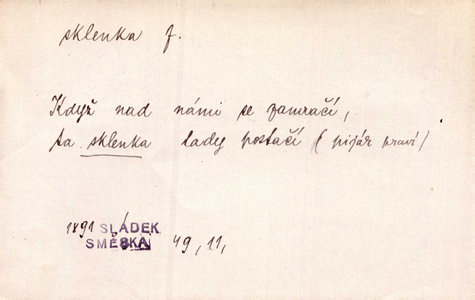 sklenka f.
Když nad námi se zamračí,
ta sklenka tady postačí (pijár praví)
1891 SLÁDEK
SMĚSKA 49, 11,